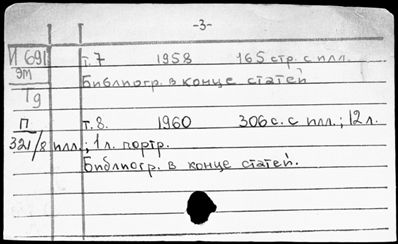 -3-
И 691 т.7 1958 165 стр. с илл.
ЭМ Библиогр. в конце статей
Тд
П т.8. 1960 306 с. с илл.; 12 л.
321/8 илл.; 1 л. портр.
Библиогр. в конце статей.